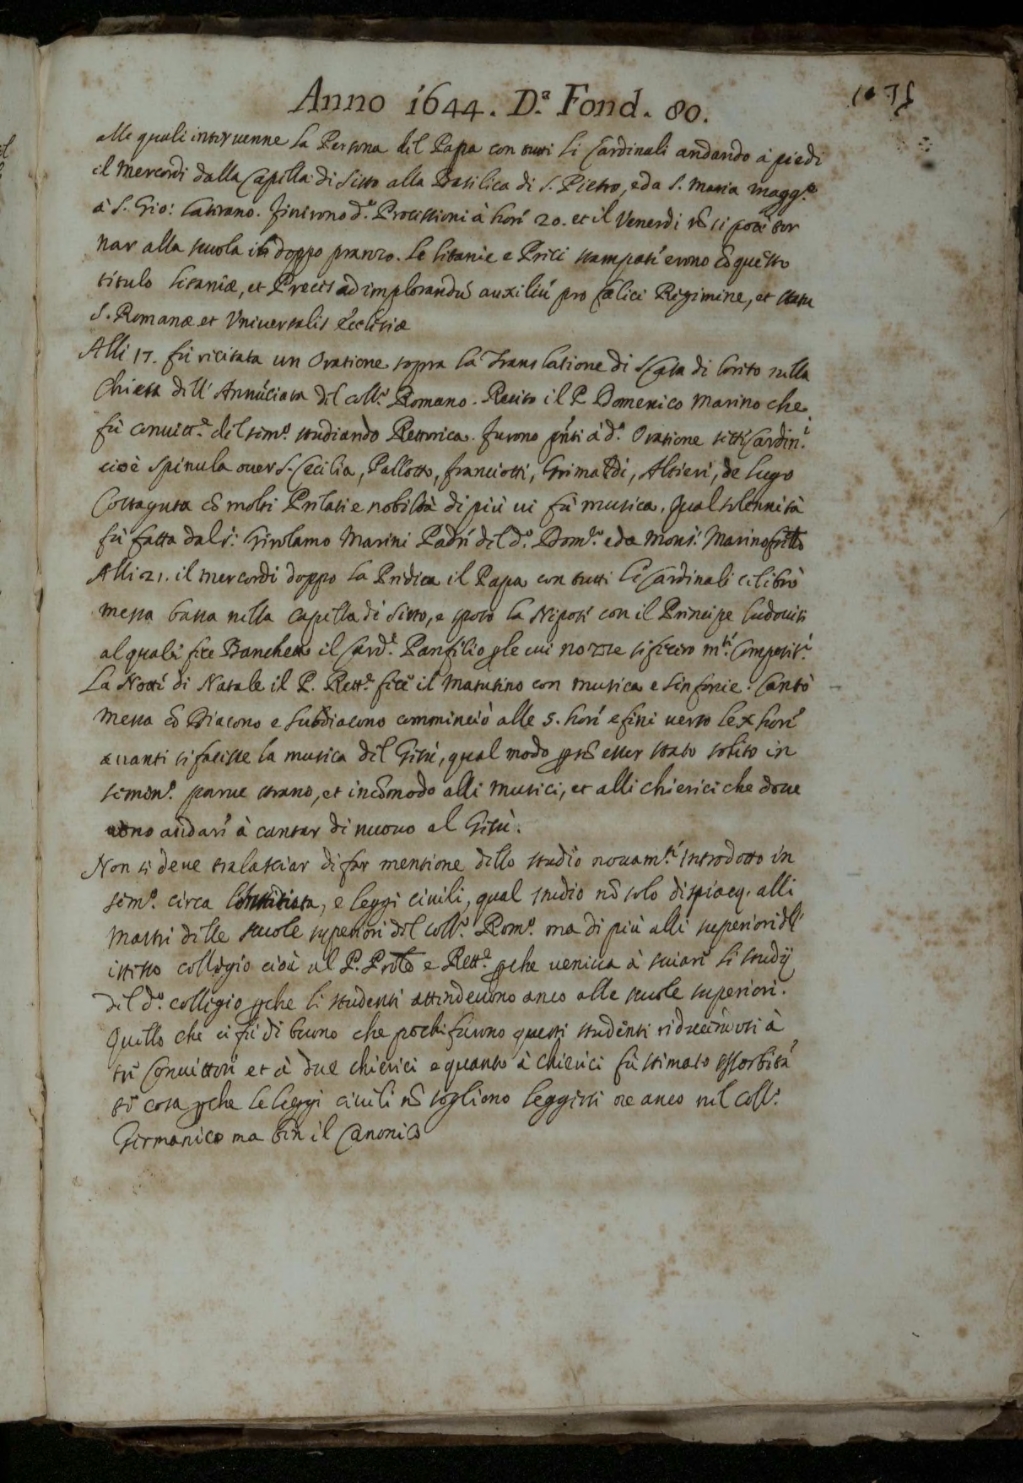 Anno 1644. D.ª Fond. 80.
alle quali intervenne la Persona del Papa con tutti li Cardinali andando à piedi
il Mercordi dalla Capella di Sisto alla Basilica di S. Pietro, e da S. Maria Magg.re
à S. Gio: Laterano. Finirono d.e Processioni à hore 20. et il Venerdi nõ si potè tor
nar alla scuola doppo pranzo. Le litanie e Preci stampate erono cõ questo
titulo Litaniæ, et Preces ad implorandũ auxiliũ pro felici Regimine, et statu
S. Romanæ et Universalis Ecclesiæ
Alli 17. fù recitata un Oratione sopra la Translatione di S. Casa di Loreto nella
Chiesa dell' Annũciata del coll.o Romano. Recitò il P. Domenico Marino che
fù convitt.e del sem.o studiando Rettorica. Furono pñti à d.a Oratione sette Cardin.i
cioè Spinula over S. Cecilia, Pallotto, Franciotti, Grimaldi, Altieri, de Lugo
Costaguta cõ molti Prelati e nobiltà di più vi fù musica. Qual solennità
fù fatta dal S.r Girolamo Marini Padre del d.o Dom.co e da Mons.r Marino fr̃ello
Alli 21. il mercordi doppo la Predica il Papa con tutti li Cardinali celebrò
messa bassa nella Capella di Sisto, e sposò la Nepote con il Principe Ludovisi
al quale fece Banchetto il Card.l Panfilio ꝑ le cui nozze si fecero m.te Composit.i
La Notte di Natale il P. Rett.e fece il Matutino con musica e sinfonie. Cantò
Messa cõ Diacono e Subdiacono comminciò alle 5. hore e finì verso le X hore
avanti si facesse la musica del Giesù, qual modo ꝑ nõ esser stato solito in
semin.o parve strano, et incõmodo alli Musici, et alli chierici che dove
vono andare à cantar di nuovo al Giesù.
Non si deve tralasciar di far mentione dello studio novam.te introdotto in
sem.o circa l'Instituta, e leggi civili, qual studio nõ solo dispiacq. alli
Mastri delle scuole superiori del coll.o Rom.o ma di più alli superiori dell'
istesso collegio cioè al P. Prõle e Rett.e ꝑche veniva à sviare li studij
del d.o collegio ꝑche li studenti attendevono anco alle scuole superiori.
Quello che ci fù di buono che pochi furono questi studenti riducendosi à
trè Convittori et à due chierici e quanto à chierici fù stimato essorbitã
te cosa ꝑche le leggi civili nõ sogliono leggersi ne anco nel coll.o
Germanico ma bẽn il Canonico